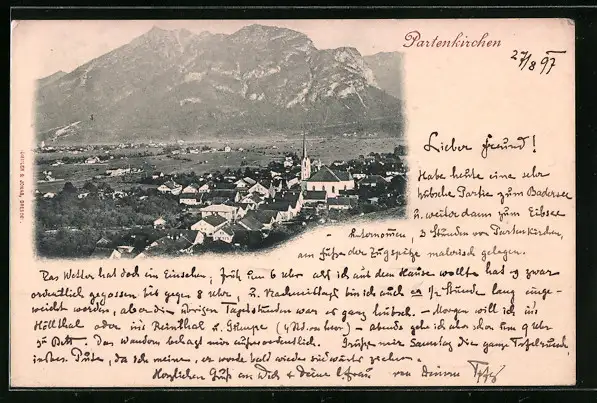 Partenkirchen
27/8 97
Lieber Freund!
Habe heute eine sehr
hübsche Partie zum Badersee
u. weiter dann zum Eibsee
unternommen, 3 Stunden von Partenkirchen,
am Fuße der Zugspitze malerisch gelegen.
Das Wetter hat doch ein Einsehen, früh um 6 Uhr als ich aus dem Hause wollte hat es zwar
ordentlich gegossen bis gegen 8 Uhr, u. Nachmittags bin ich auch ca 1/2 Stunde lang einge-
weicht worden, aber die übrigen Tagesstunden war es ganz hübsch. - Morgen will ich ins
Höllthal oder ins Reinthal u. - abends gehe ich also schon um 9 Uhr
zu Bett. Das Wandern behagt mir außerordentlich. Grüße mir Samstag die ganze Tafelrunde,
Pute, da ich meine, er werde bald wieder südwärts ziehen.
Herzlichen Gruß an Dich & Deine Frau von Deinem